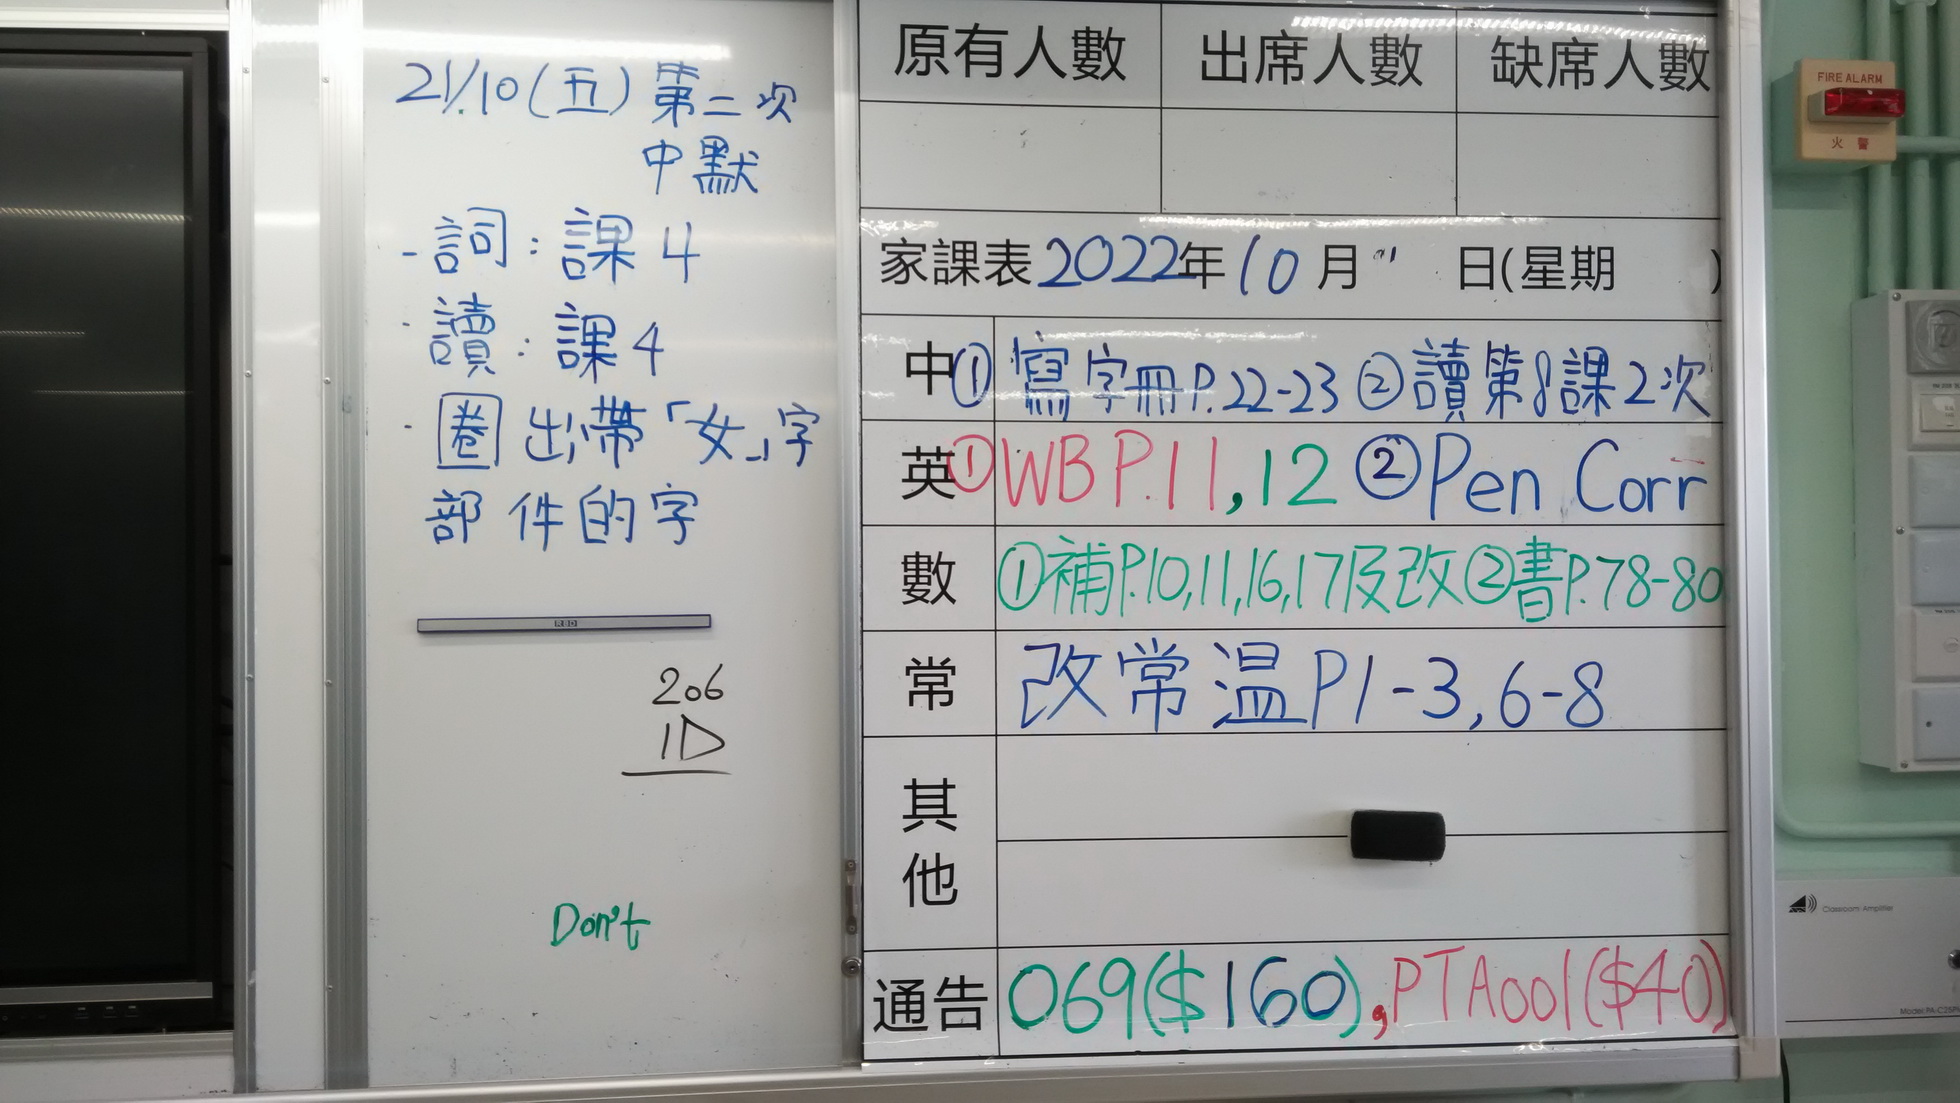 21/10(五)第二次
中默
-詞:課4
·讀:課4
·圈出帶「女」字
部件的字
RBD
206
1D
Don't
原有人數 出席人數 缺席人數
家課表2022年10月 日(星期 )
中 ①寫字冊P.22-23 ②讀第8課2次
英 ①WB P.11,12 ②Pen Corr
數 ①補P.10,11,16,17及改 ②書P.78-80
常 改常溫P1-3,6-8
其他
通告 069($160),PTA001($40)
FIRE ALARM
火警
Classroom Amplifier